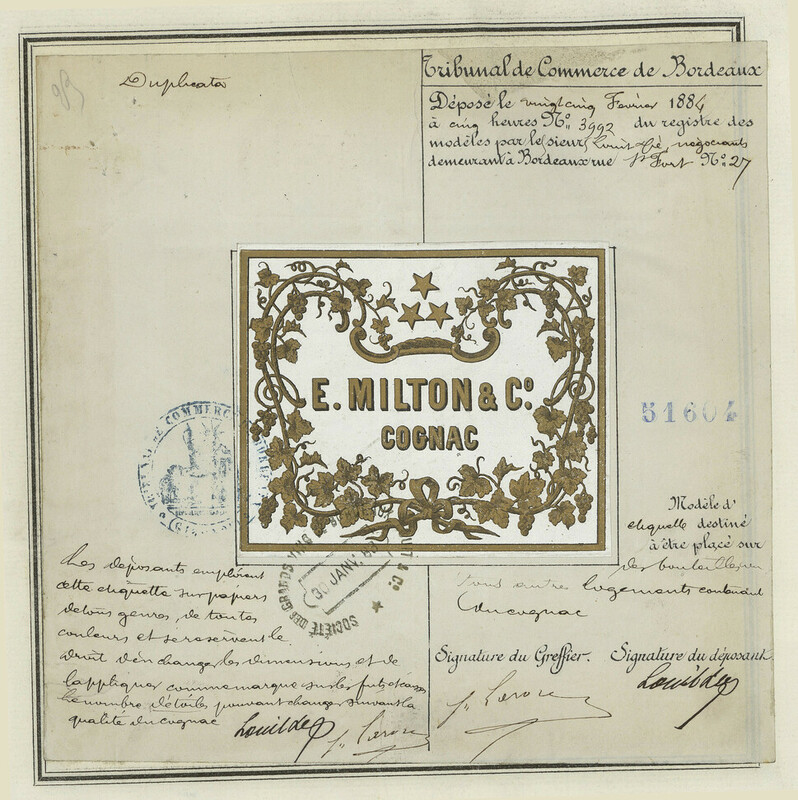 Duplicata
Tribunal de Commerce de Bordeaux
Déposé le vingt cinq Fevrier 1884
à cinq heures No. 3992 du registre des
modèles par le sieur Louit &ie, négociants
demeurant à Bordeaux rue St Fort No. 27
E. MILTON & Co.
COGNAC
51604
TRIBUNAL DE COMMERCE
Modèle d'
etiquette destiné
à être placé sur
des bouteilles ou
tous autres logements contenant
du cognac
Les déposants emploieront
cette etiquette sur papiers
de tous genres, de toutes
couleurs et se reservent le
droit d'en changer les dimensions et de
l'appliquer comme marque sur les futs et caisses
le nombre d'étoiles pouvant changer suivant la
qualité du cognac
SOCIÉTÉ DES GRANDS VINS
30 JANV.
& Co
Signature du Greffier. Signature du déposant.